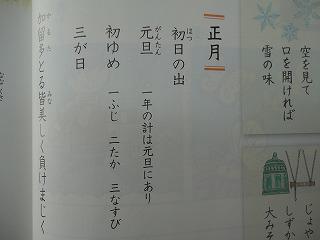 空を見て
口を開ければ
雪の味
じょや
しずか
大みそ
正月
初日の出
はつ
元旦 一年の計は元旦にあり
がんたん
初ゆめ 一ふじ 二たか 三なすび
三が日
加留多とる皆美しく負けまじく
かるた みな